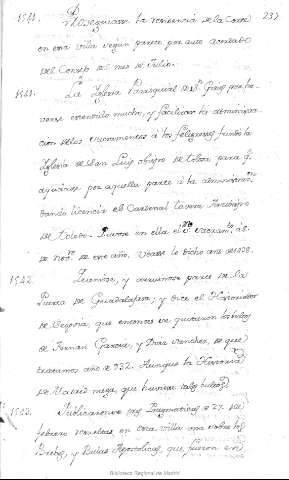 1541. 237
Proseguian la residencia de la Corte
en esta villa segun parece por auto acordado
del Consejo de mes de Julio.
1541. La Iglesia Parroquial de Sn. Gines por ha-
verse estendido mucho, y facilitar la administra-
cion de los sacramentos á los feligreses fundó la
Iglesia de San Luis obispo de tolosa para q.
ayudase por aquella parte á la administracion
dando licencia el Cardenal tavera Arzobispo
de toledo. en ella el
de Nov.e de este año,
1542. y arruinose parte de la
Puerta de Guadalajara, y dice el Historiador
de Segovia, que entonces se quitaron los bultos
de Fernan Garcia, y Diaz Sanchez, de que
tratamos año de 932. Aunque la Historia
de Madrid niega, que huviese tales bultos
1543. Publicaronse tres Pragmaticas á 27. de
febrero en esta villa una sobre los
y Bulas Apostolicas, que fueron en
Biblioteca Regional de Madrid